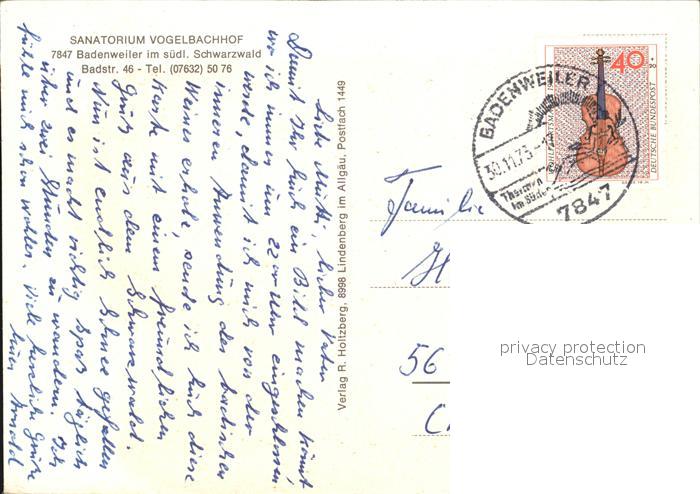 SANATORIUM VOGELBACHHOF
7847 Badenweiler im südl. Schwarzwald
Badstr. 46 - Tel. (07632) 50 76
Liebe Mutti, lieber Vater
Damit Ihr Euch ein Bild machen könnt
wo ich immer um 22 00 Uhr eingeschlossen
werde, damit ich mich von der
inneren Anwendung des badischen
Weines erhole, sende ich Euch diese
Karte mit einem freundlichen
Gruß aus dem Schwarzwald.
Nun ist endlich Schnee gefallen
und es macht richtig Spaß täglich
über zwei Stunden zu wandern. Ich
fühle mich schon wohler. Viele herzliche Grüße
Euer Arnold
Verlag R. Holtzberg, 8998 Lindenberg im Allgäu, Postfach 1449
40
DEUTSCHE BUNDESPOST
BADENWEILER
30.11.73
Thermen
im Süden
7847
Familie
H
56
privacy protection
Datenschutz